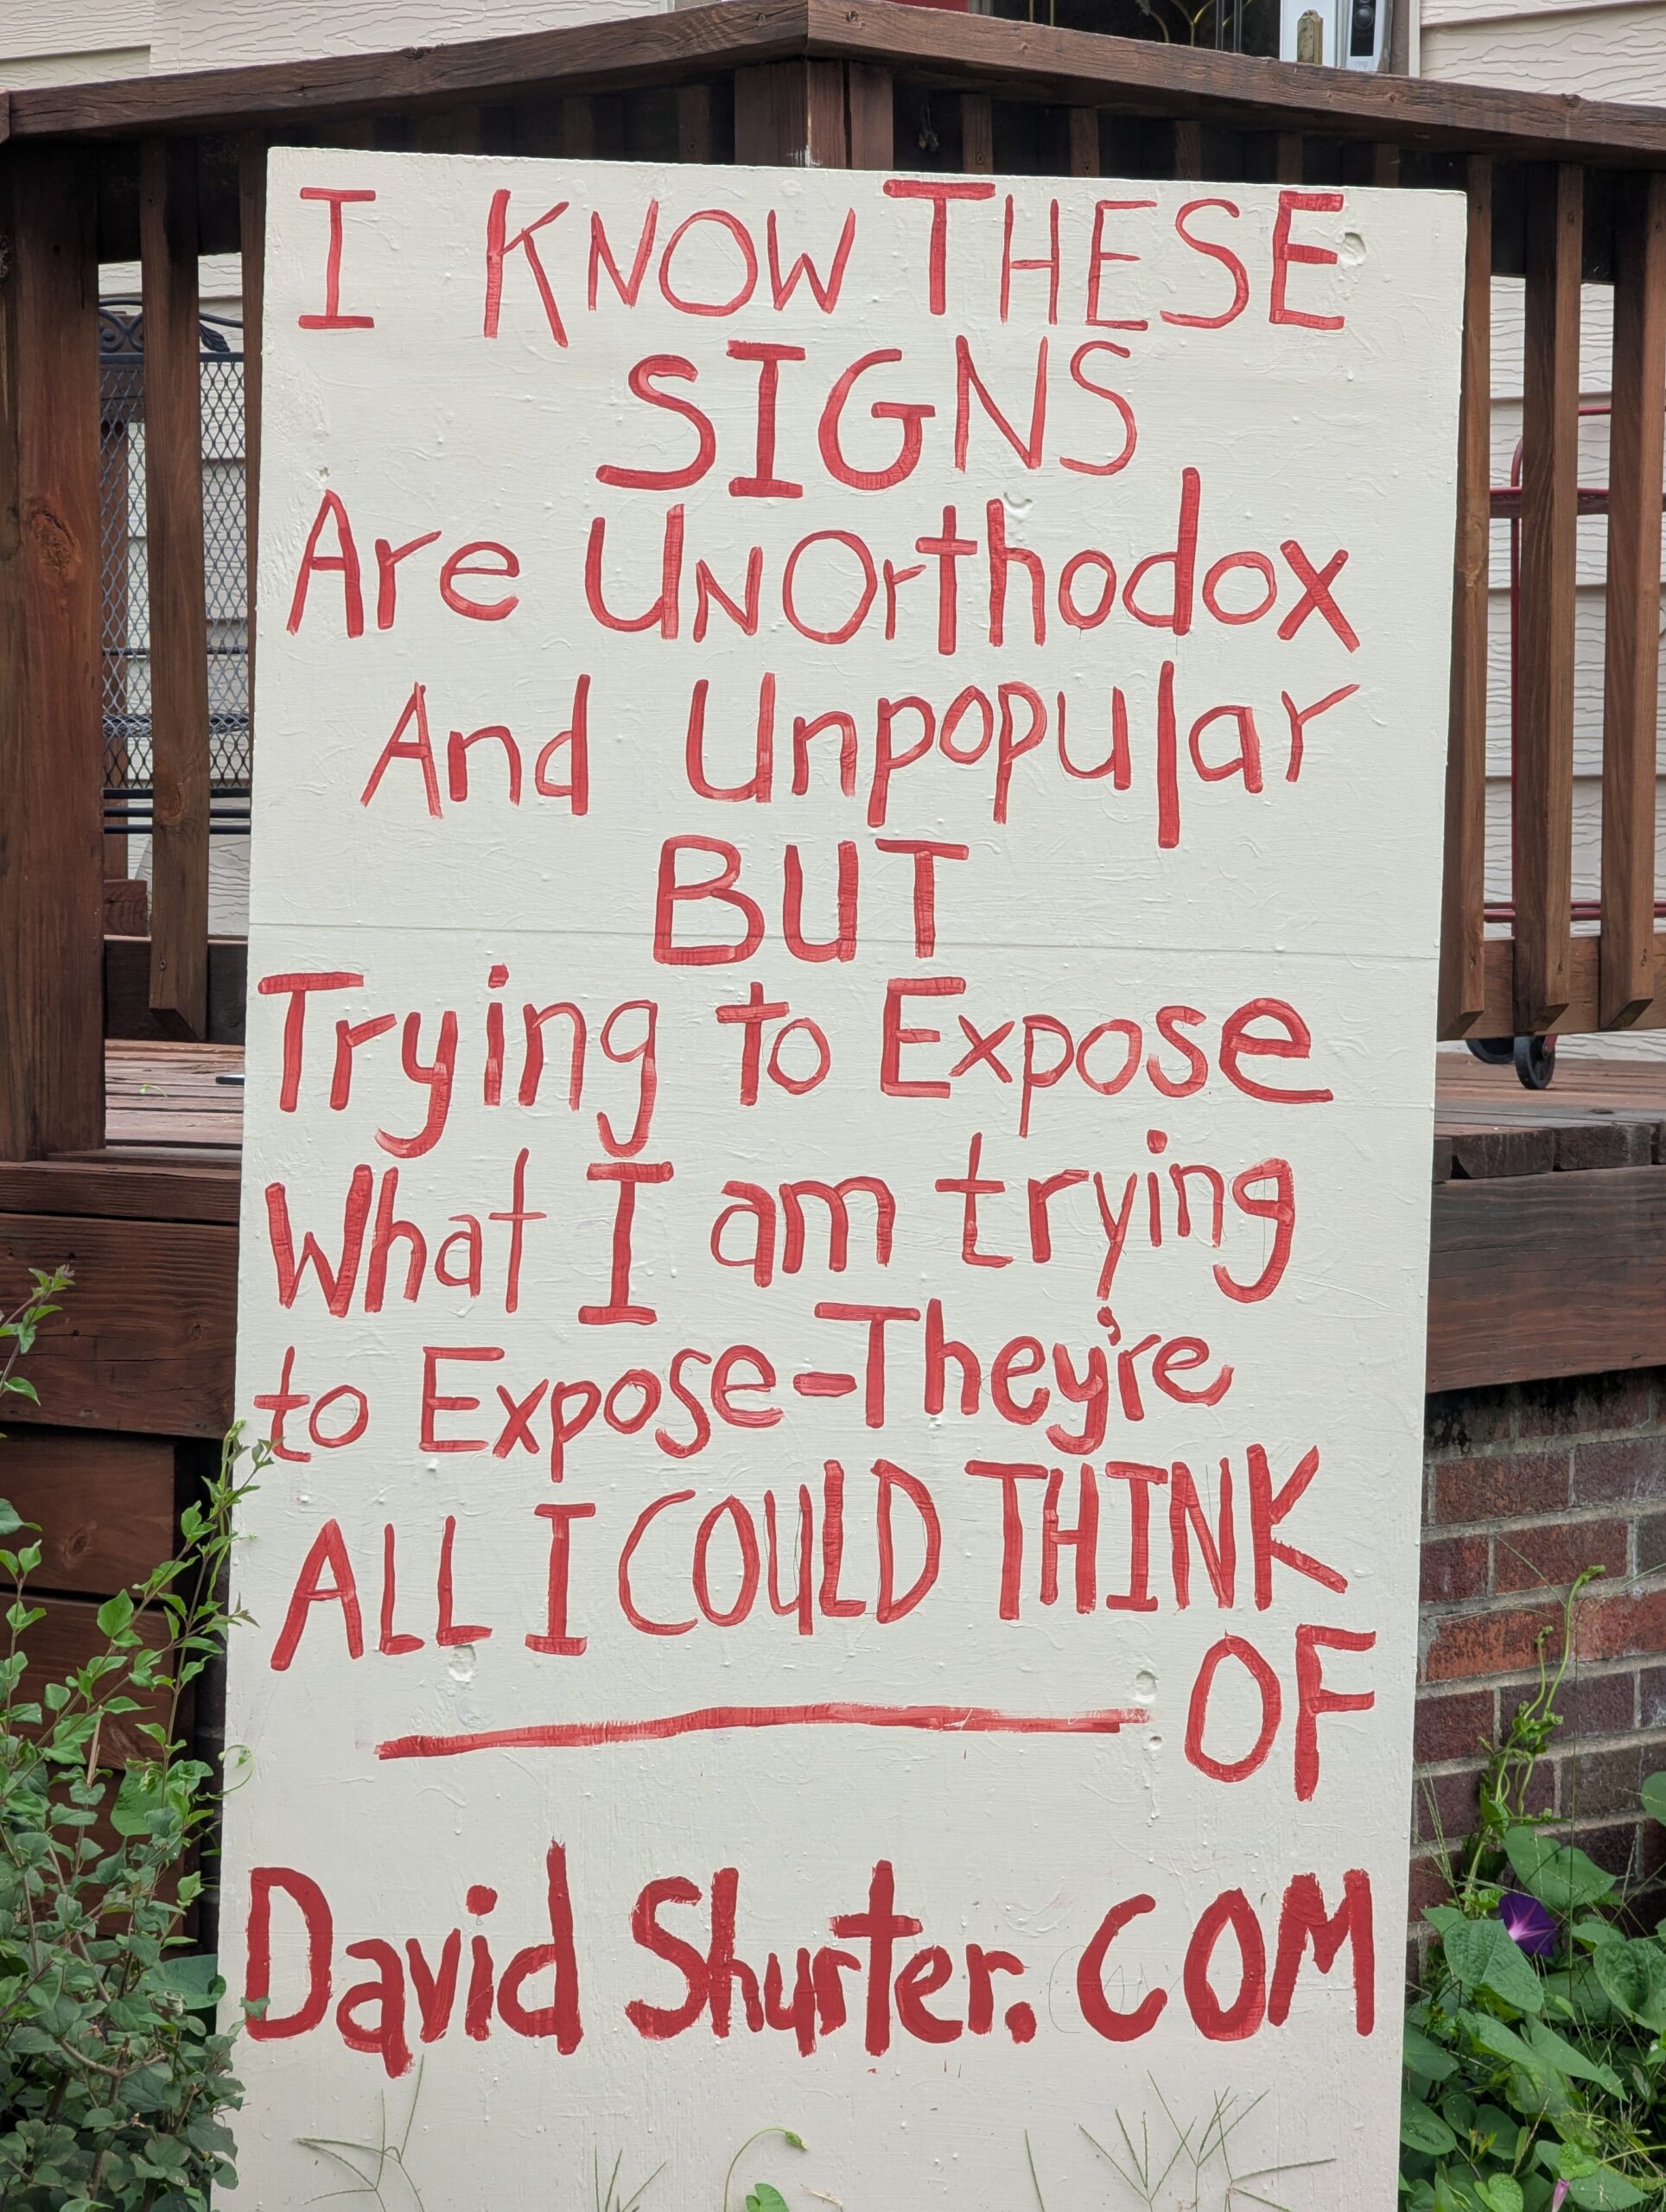 I KNOW THESE
SIGNS
Are UNOrthodox
And Unpopular
BUT
Trying to Expose
What I am trying
to Expose-They're
ALL I COULD THINK
OF
David Shurter. COM
ring